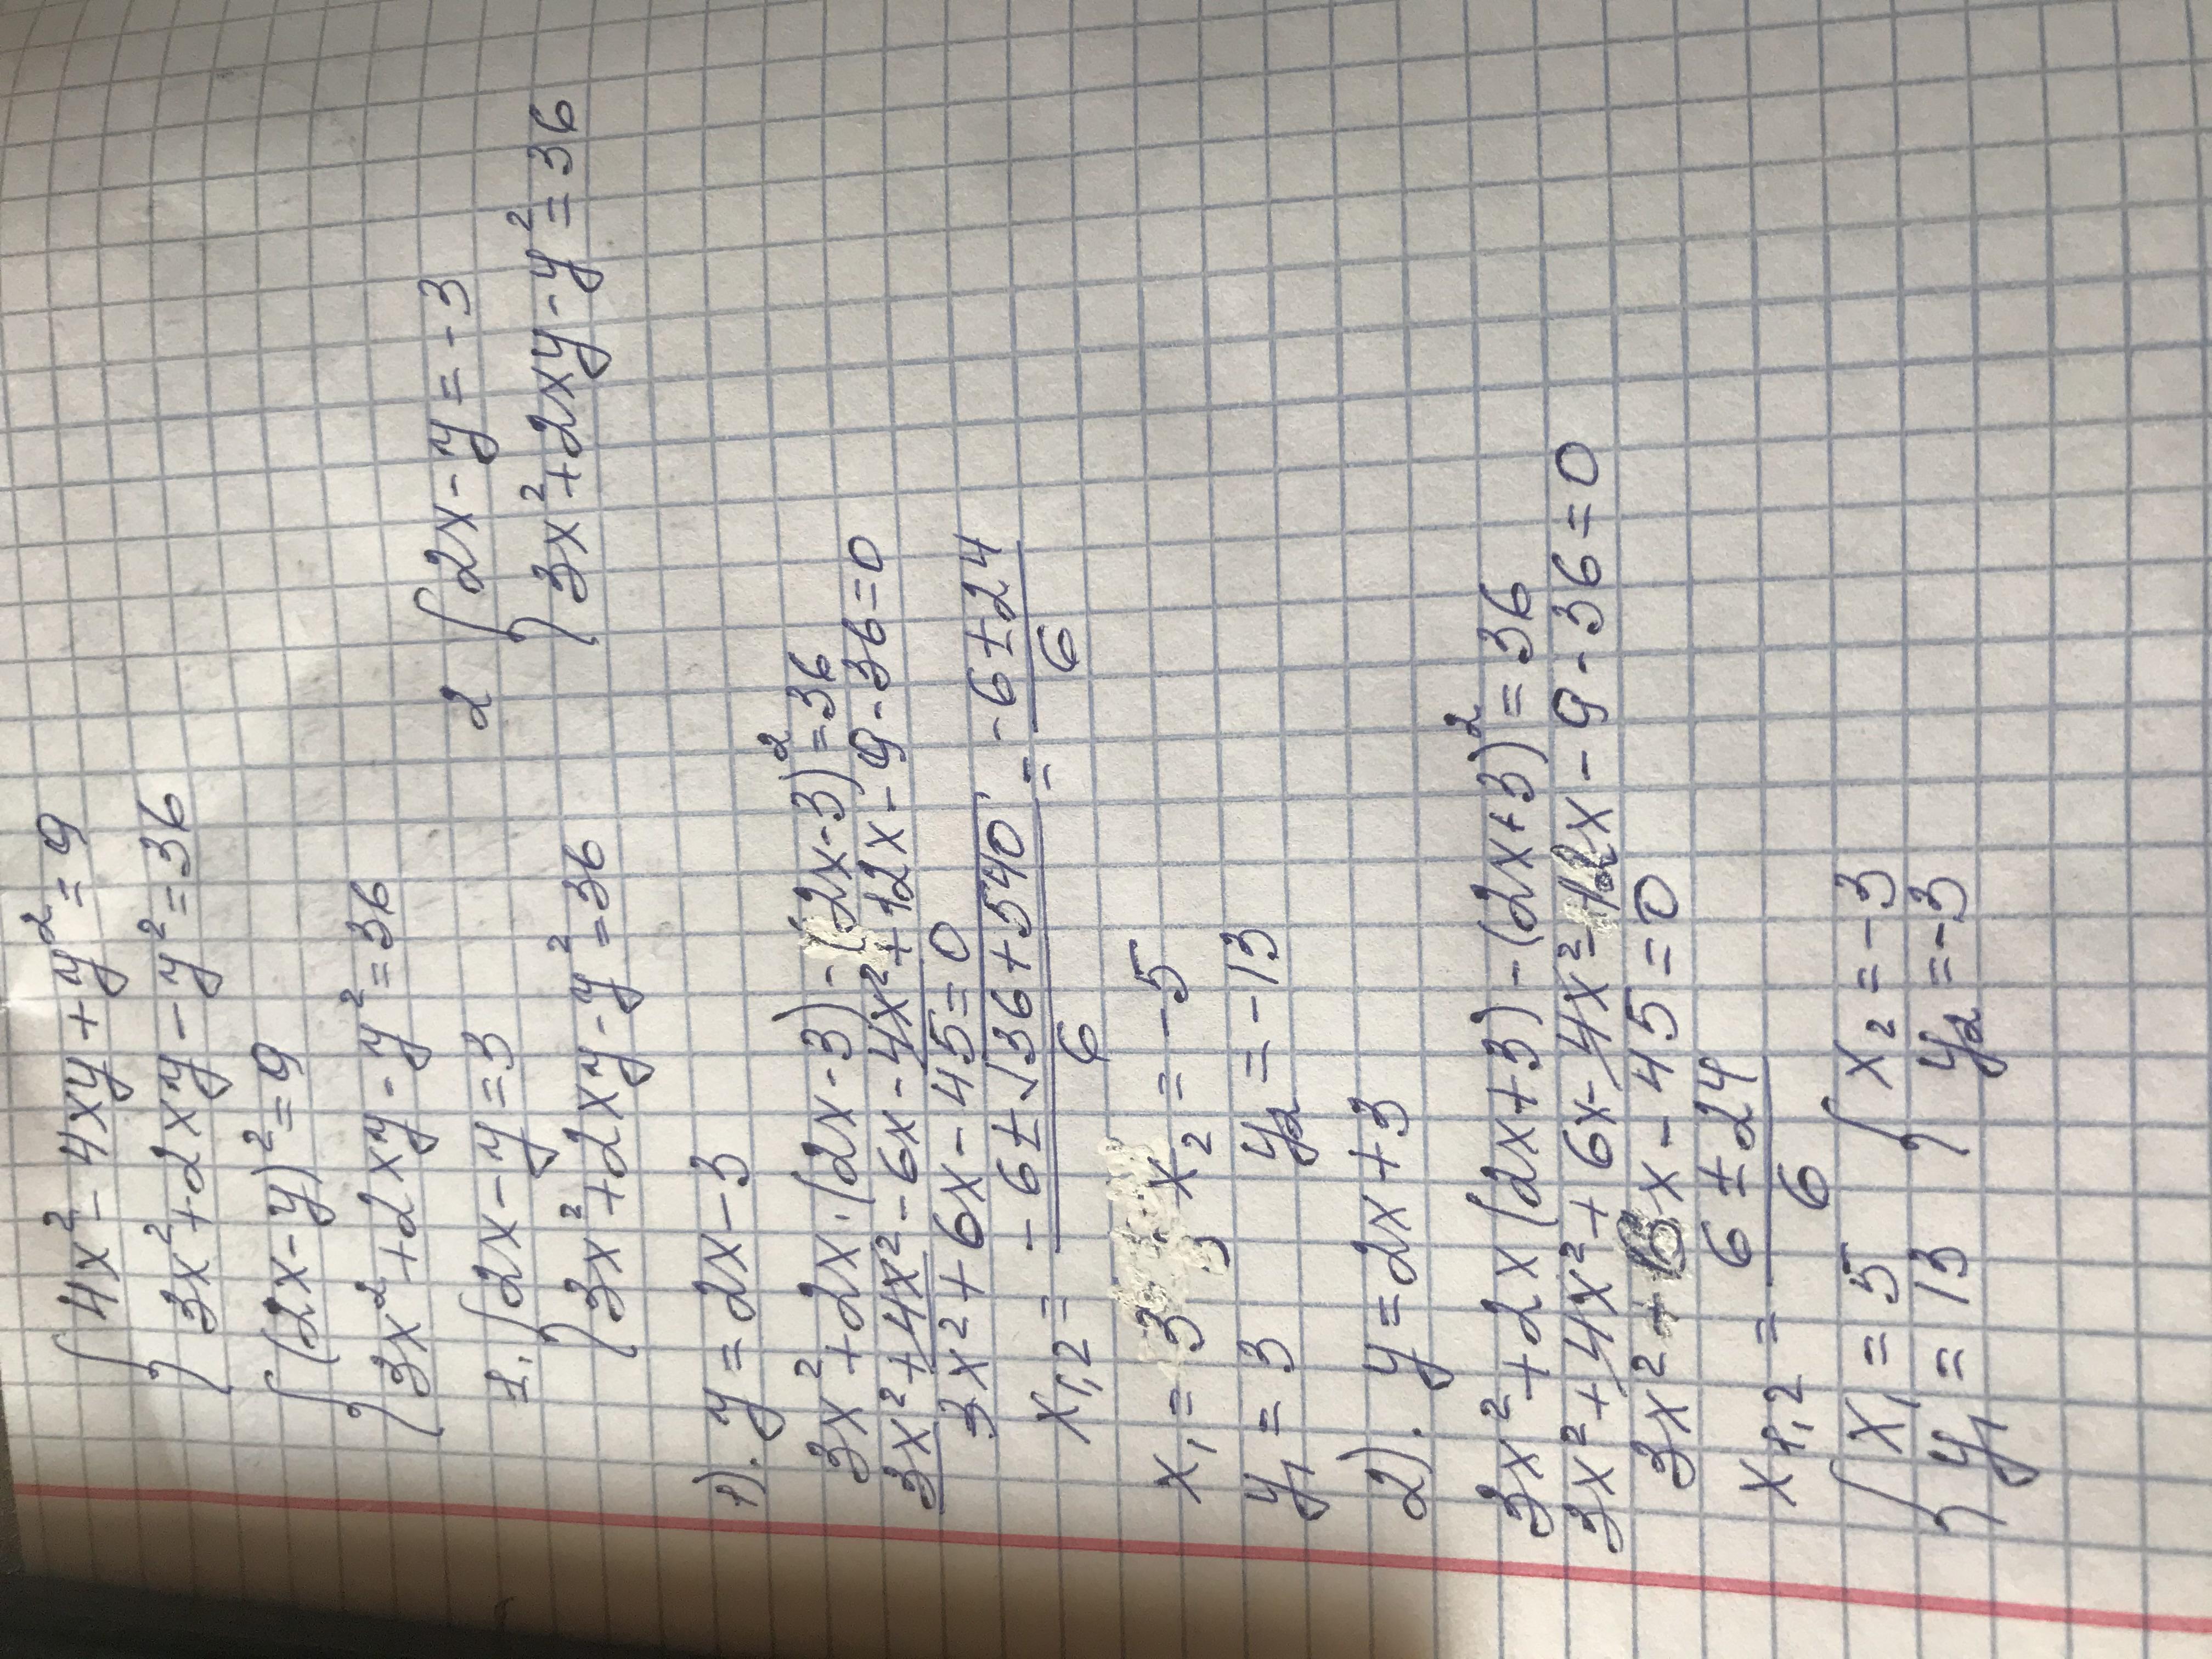 { 4x² - 4xy + y² = 9
3x² + 2xy - y² = 36
{ (2x - y)² = 9
3x² + 2xy - y² = 36
1. { 2x - y = 3
3x² + 2xy - y² = 36
2 { 2x - y = -3
3x² + 2xy - y² = 36
1). y = 2x - 3
3x² + 2x·(2x - 3) - (2x - 3)² = 36
3x² + 4x² - 6x - 4x² + 12x - 9 - 36 = 0
3x² + 6x - 45 = 0
x₁,₂ = (-6 ± √(36 + 540))/6 = (-6 ± 24)/6
x₁ = 3 x₂ = -5
y₁ = 3 y₂ = -13
2). y = 2x + 3
3x² + 2x(2x + 3) - (2x + 3)² = 36
3x² + 4x² + 6x - 4x² - 12x - 9 - 36 = 0
3x² - 6x - 45 = 0
x₁,₂ = (6 ± 24)/6
{ x₁ = 5 { x₂ = -3
y₁ = 13 y₂ = -3